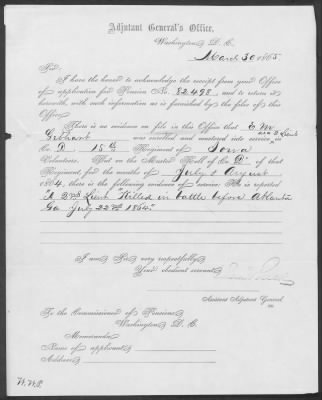 Adjutant General's Office,
Washington, D. C.
March 30 1865
Sir:
I have the honor to acknowledge the receipt from your Office
of application for Pension No. 82498, and to return it
herewith, with such information as is furnished by the files of this
Office.
There is no evidence on file in this Office that E. M.
Gebhart was enrolled and mustered into service in as a 2 Lieut
Co. D 15th Regiment of Iowa
Volunteers. But on the Muster Roll of Co. D of that
Regiment, for the months of July & August
1864, there is the following evidence of service: He is reported
"A 2nd Lieut "Killed in battle before Atlanta
Ga July 22nd 1864."
I am, Sir, very respectfully,
Your obedient servant,
Assistant Adjutant General.
To the Commissioner of Pensions,
Washington, D. C.
Memoranda:
Name of applicant,
Address,